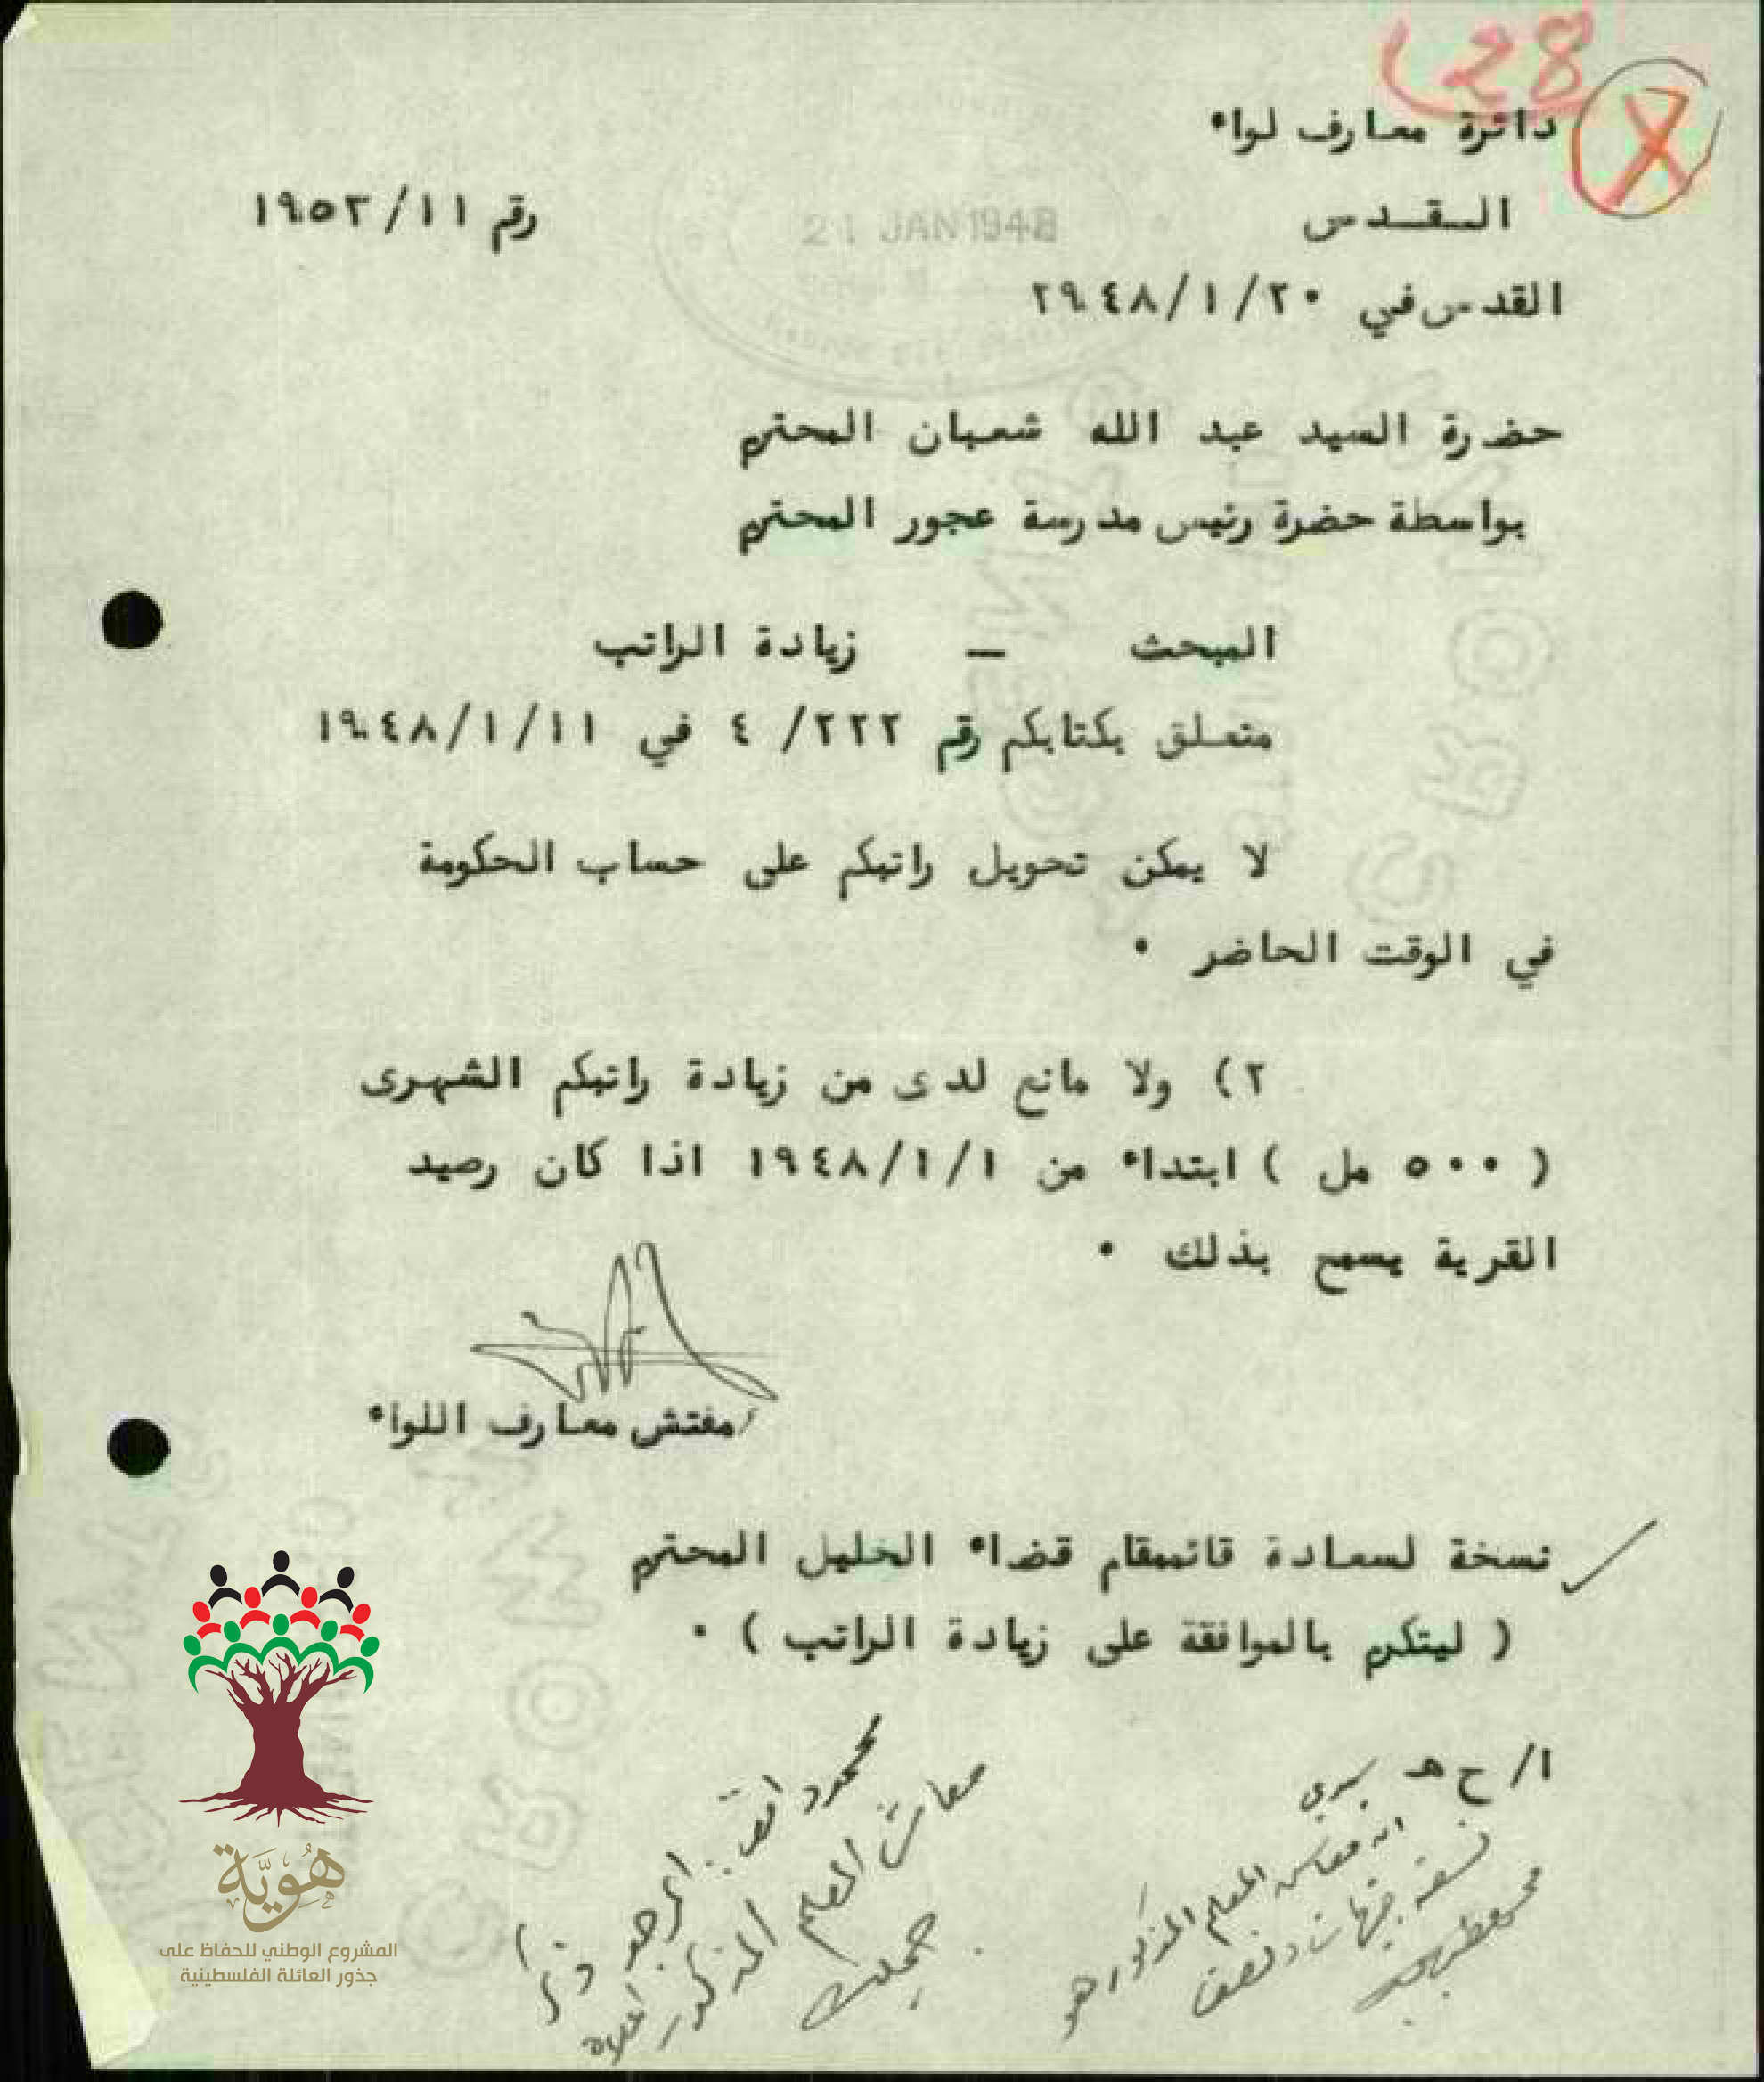 28
دائرة معارف لواء
الـقـدس
رقم ١٩٥٣/١١
21 JAN 1948
القدس في ٢٩٤٨/١/٢٠
حضرة السيد عبد الله شعبان المحترم
بواسطة حضرة رئيس مدرسة عجور المحترم
المبحث — زيادة الراتب
متعلق بكتابكم رقم ٢٢٢/ ٤ في ١٩٤٨/١/١١
لا يمكن تحويل راتبكم على حساب الحكومة
في الوقت الحاضر ٠
٢) ولا مانع لدى من زيادة راتبكم الشهرى
( ٥٠٠ مل ) ابتداء من ١٩٤٨/١/١ اذا كان رصيد
القرية يسمح بذلك ٠
مفتش معارف اللواء
نسخة لسعادة قائممقام قضاء الخليل المحترم
( ليتكرم بالموافقة على زيادة الراتب ) ٠
ا/ ح هـ
محمود افندي : المرجو ذكر
معاش المعلم المذكور اعلاه
سيدي
ان معاش المعلم المذكور هو
تسعة جنيهات ونصف
هُويَّة
المشروع الوطني للحفاظ على
جذور العائلة الفلسطينية